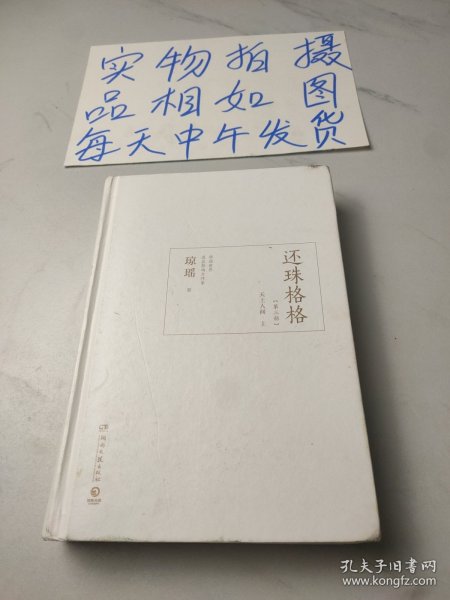 实物拍摄
品相如图
每天中午发货
还珠格格
【第三部】
天上人间 上
琼瑶
著
湖南文艺出版社
孔夫子旧书网
www.kongfz.com